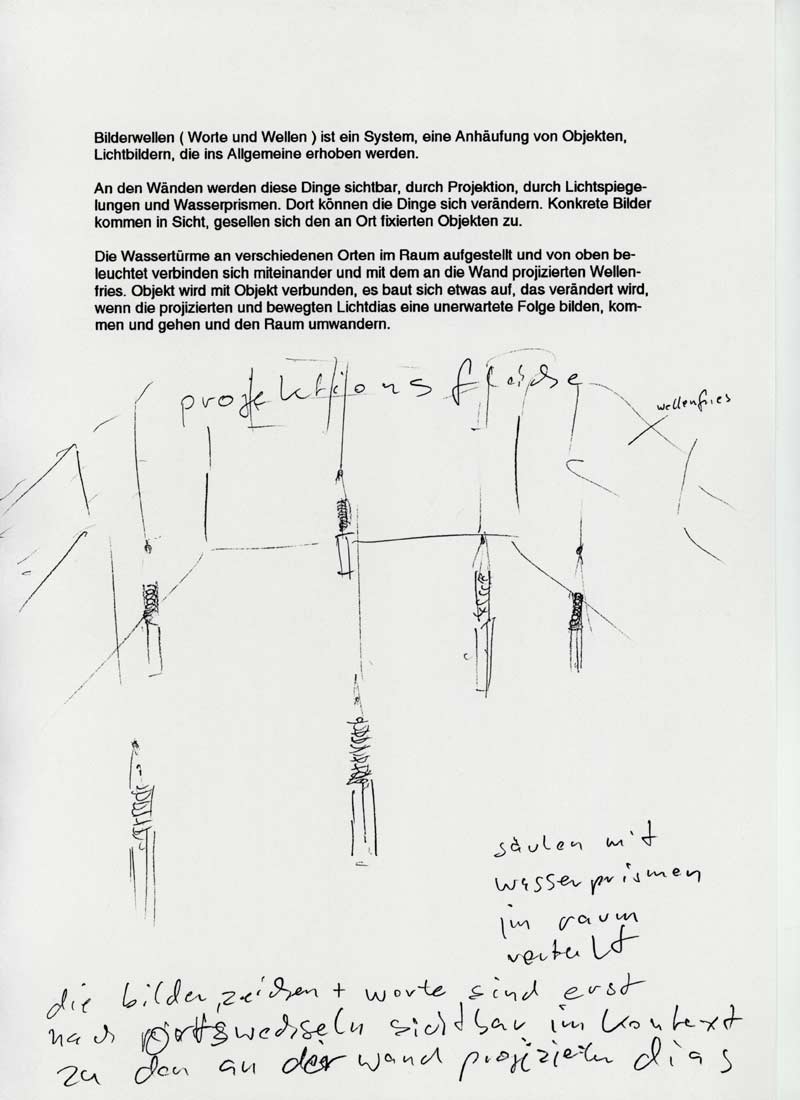 Bilderwellen ( Worte und Wellen ) ist ein System, eine Anhäufung von Objekten,
Lichtbildern, die ins Allgemeine erhoben werden.
An den Wänden werden diese Dinge sichtbar, durch Projektion, durch Lichtspiege-
lungen und Wasserprismen. Dort können die Dinge sich verändern. Konkrete Bilder
kommen in Sicht, gesellen sich den an Ort fixierten Objekten zu.
Die Wassertürme an verschiedenen Orten im Raum aufgestellt und von oben be-
leuchtet verbinden sich miteinander und mit dem an die Wand projizierten Wellen-
fries. Objekt wird mit Objekt verbunden, es baut sich etwas auf, das verändert wird,
wenn die projizierten und bewegten Lichtdias eine unerwartete Folge bilden, kom-
men und gehen und den Raum umwandern.
projektionsfläche
wellenfries
säulen mit
wasserprismen
im raum
verteilt
die bilder, zeichen + worte sind erst
nach ortswechseln sichtbar im kontext
zu den an der wand projizierten dias